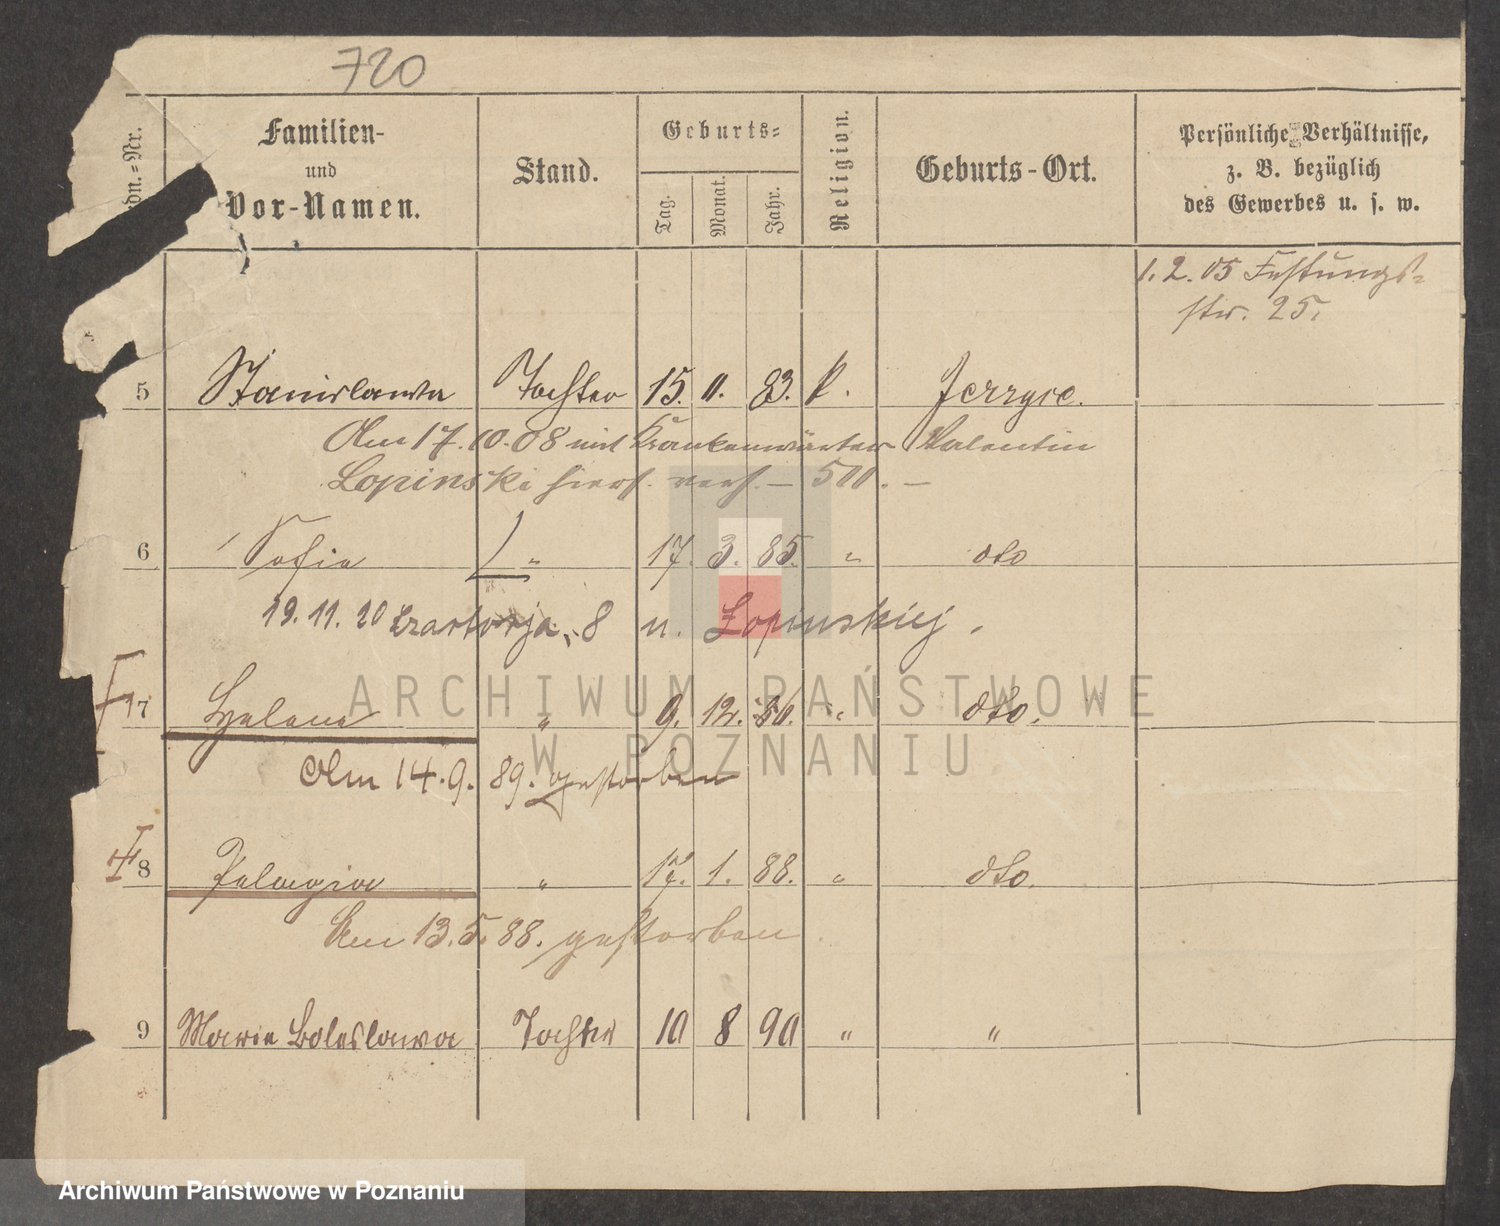 720
Ordn.-Nr.
Familien-
und
Vor-Namen.
Stand.
Geburts-
Tag.
Monat.
Jahr.
Religion.
Geburts-Ort.
Persönliche Verhältnisse,
z. B. bezüglich
des Gewerbes u. s. w.
1. 2. 05 Festungs-
str. 25.
5 Stanislawa Tochter 15. 11. 83. k. Jerzyce.
Am 17. 10. 08 mit Krankenwärter Valentin
Lopinski hiers. verh. — 500. —
6 Sofia " 17. 3. 85. " dto
19. 11. 20 Czartorja 8 u. Łopinskiej.
7 Helena " 9. 12. 86. " dto.
Am 14. 9. 89. gestorben
8 Pelagia " 17. 1. 88. " dto.
Am 13. 5. 88. gestorben
9 Marie Boleslawa Tochter 10 8 90 " "
ARCHIWUM PAŃSTWOWE
W POZNANIU
Archiwum Państwowe w Poznaniu